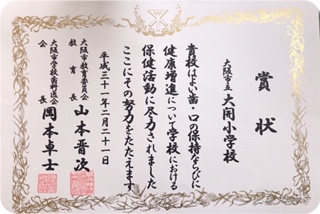 賞状
大阪市立 大開小学校
貴校はよい歯・口の保持ならびに
健康増進について学校における
保健活動に尽力されました
ここにその努力をたたえます
平成三十一年二月二十一日
大阪市教育委員会
教育長 山本晋次
大阪市学校歯科医会
会長 岡本卓士